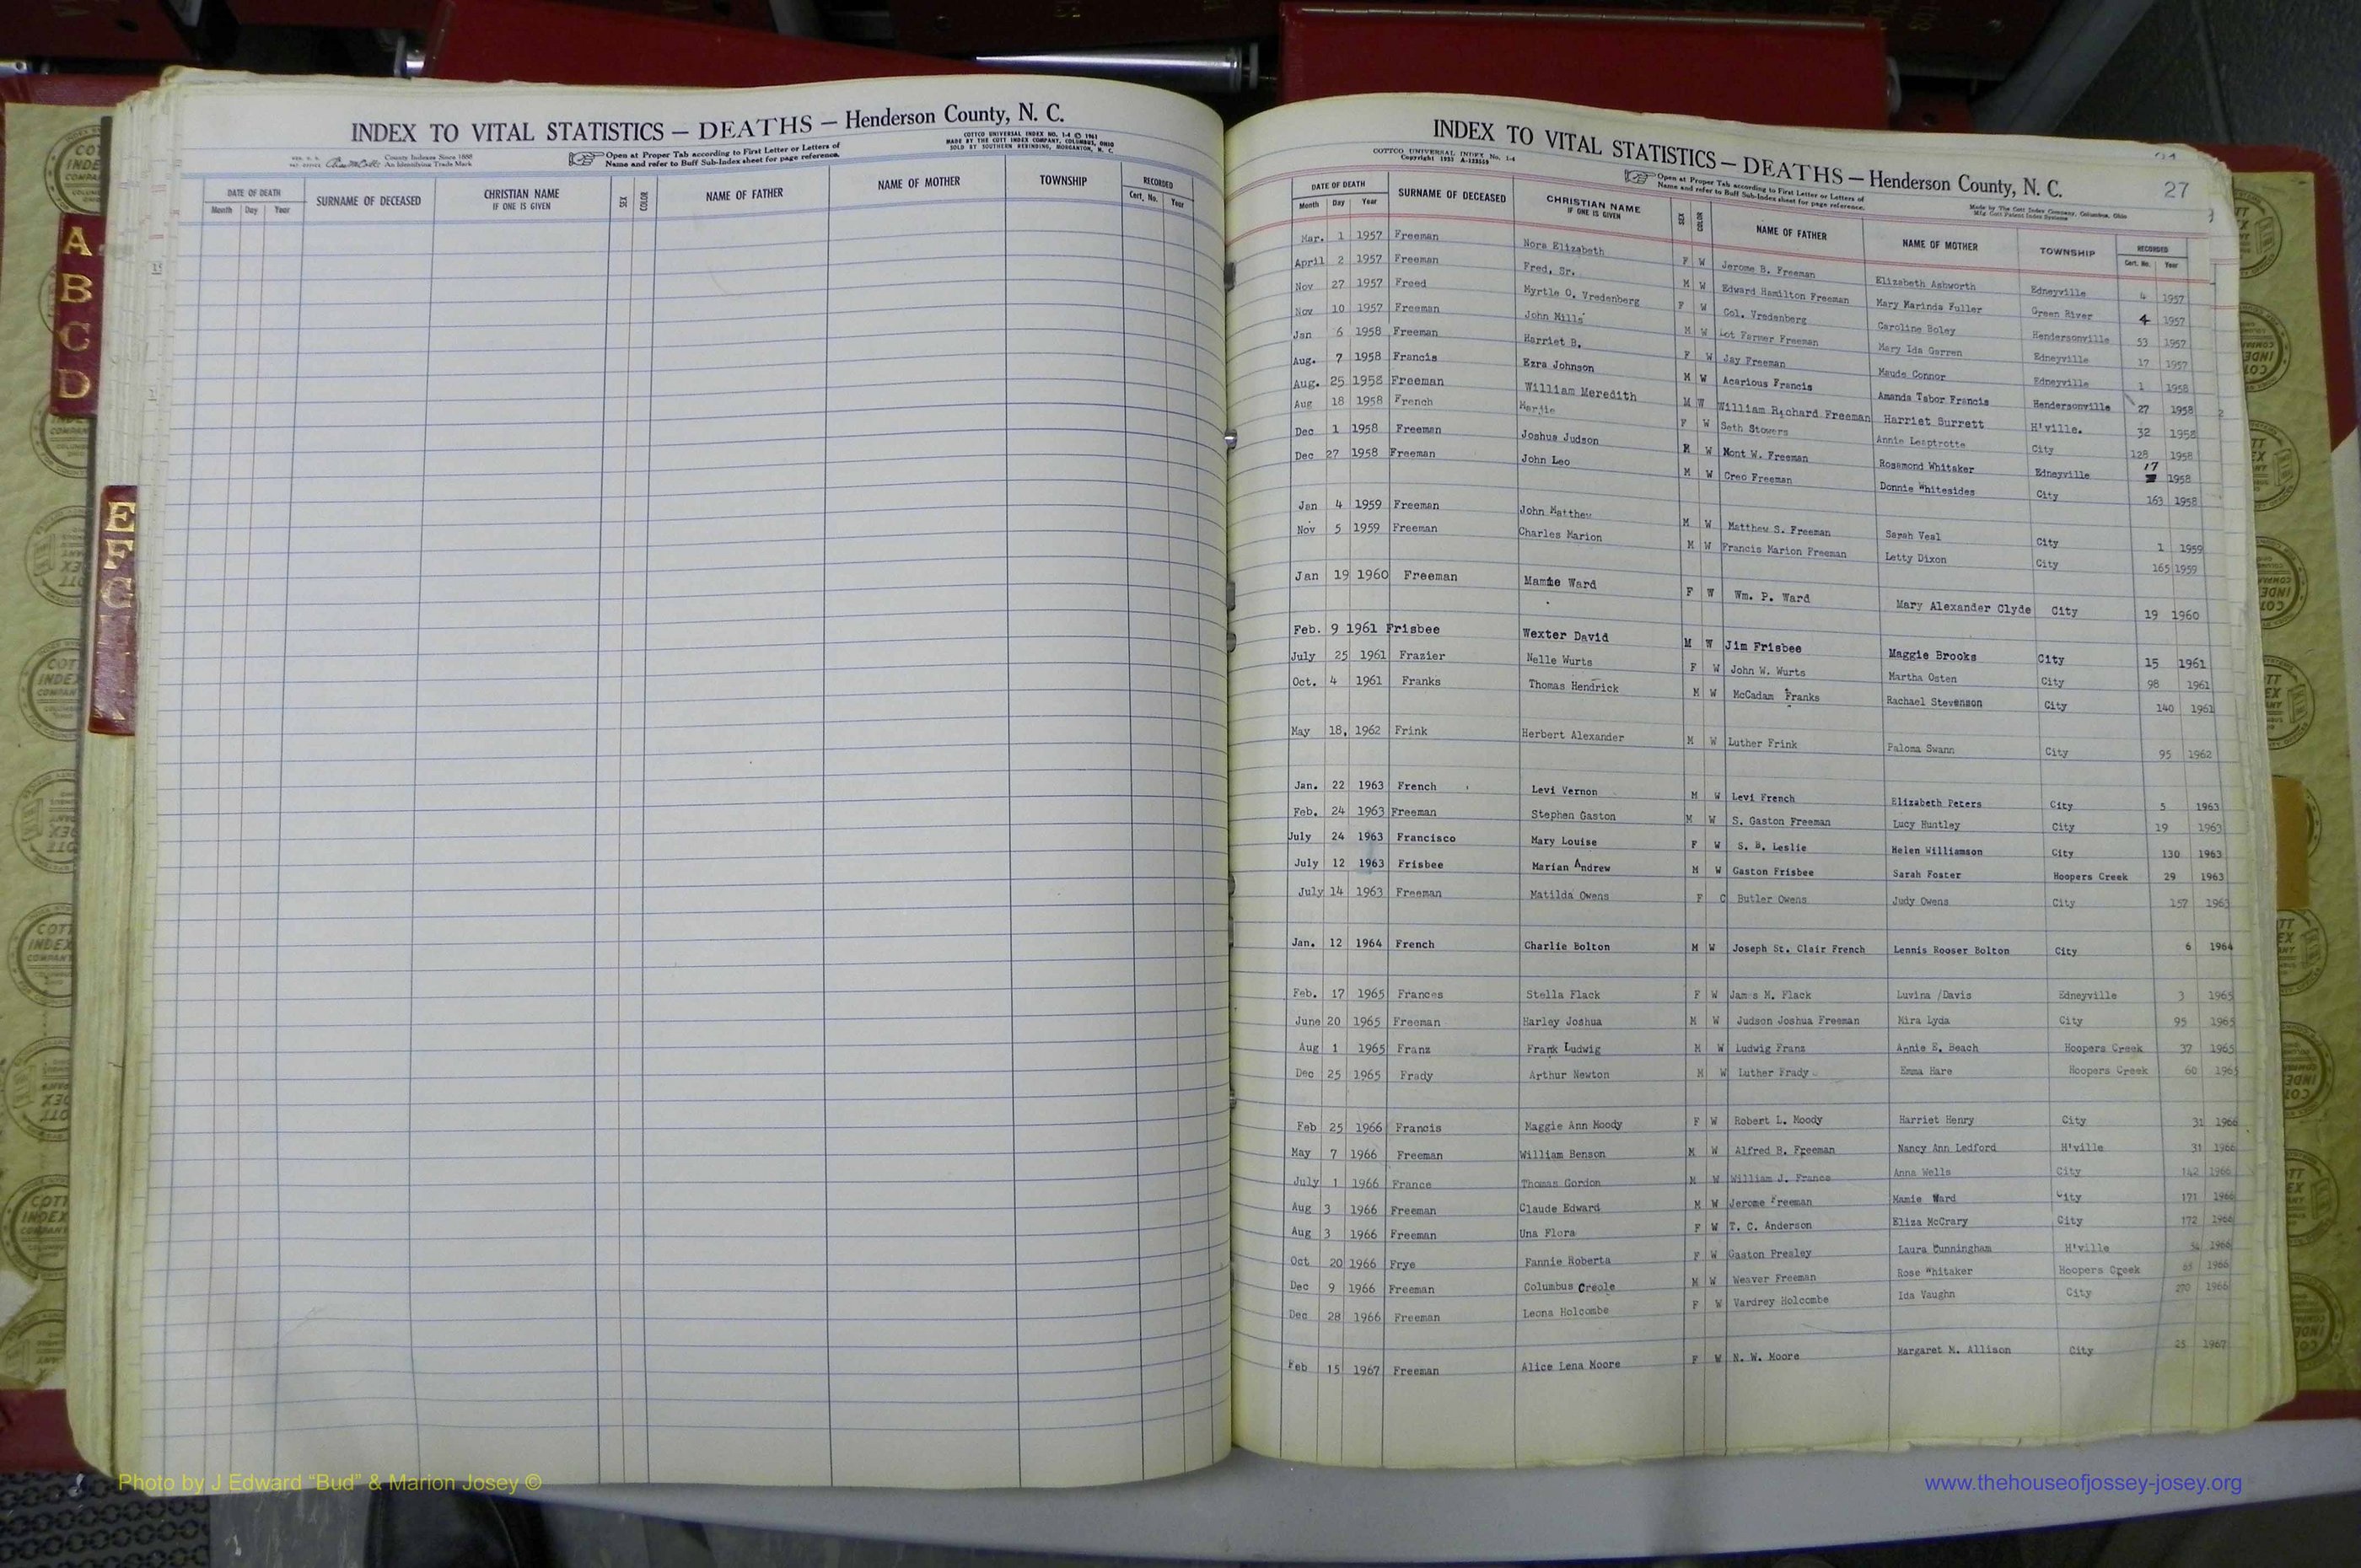 INDEX TO VITAL STATISTICS — DEATHS — Henderson County, N. C.
COTTCO UNIVERSAL INDEX NO. 1-4 © 1961
MADE BY THE COTT INDEX COMPANY, COLUMBUS, OHIO
SOLD BY SOUTHERN REBINDING, MORGANTON, N. C.
County Indexes Since 1888
An Identifying Trade Mark
Open at Proper Tab according to First Letter or Letters of
Name and refer to Buff Sub-Index sheet for page reference.
DATE OF DEATH
Month Day Year
SURNAME OF DECEASED
CHRISTIAN NAME
IF ONE IS GIVEN
SEX
COLOR
NAME OF FATHER
NAME OF MOTHER
TOWNSHIP
RECORDED
Cert. No. Year
A
B
C
D
E
F
G
INDEX TO VITAL STATISTICS — DEATHS — Henderson County, N. C.
27
COTTCO UNIVERSAL INDEX No. 1-4
Open at Proper Tab according to First Letter or Letters of
Name and refer to Buff Sub-Index sheet for page reference.
Made by The Cott Index Company, Columbus, Ohio
DATE OF DEATH
Month Day Year
SURNAME OF DECEASED
CHRISTIAN NAME
IF ONE IS GIVEN
SEX
COLOR
NAME OF FATHER
NAME OF MOTHER
TOWNSHIP
RECORDED
Cert. No. Year
Mar. 1 1957 Freeman Nora Elizabeth F W Jerome B. Freeman Elizabeth Ashworth Edneyville 4 1957
April 2 1957 Freeman Fred, Sr. M W Edward Hamilton Freeman Mary Marinda Fuller Green River 4 1957
Nov 27 1957 Freed Myrtle O. Vredenberg F W Col. Vredenberg Caroline Boley Hendersonville 53 1957
Nov 10 1957 Freeman John Mills M W Lot Farmer Freeman Mary Ida Garren Edneyville 17 1957
Jan 6 1958 Freeman Harriet B. F W Jay Freeman Maude Connor Edneyville 1 1958
Aug. 7 1958 Francis Ezra Johnson M W Acarious Francis Amanda Tabor Francis Hendersonville 27 1958
Aug. 25 1958 Freeman William Meredith M W William Richard Freeman Harriet Surrett H'ville. 32 1958
Aug 18 1958 French Marjie F W Seth Stowers Annie Leaptrotte City 128 1958
Dec 1 1958 Freeman Joshua Judson M W Mont W. Freeman Rosamond Whitaker Edneyville 17 1958
Dec 27 1958 Freeman John Leo M W Creo Freeman Donnie Whitesides City 163 1958
Jan 4 1959 Freeman John Matthew M W Matthew S. Freeman Sarah Veal City 1 1959
Nov 5 1959 Freeman Charles Marion M W Francis Marion Freeman Letty Dixon City 165 1959
Jan 19 1960 Freeman Mamie Ward F W Wm. P. Ward Mary Alexander Clyde City 19 1960
Feb. 9 1961 Frisbee Wexter David M W Jim Frisbee Maggie Brooks City 15 1961
July 25 1961 Frazier Nelle Wurts F W John W. Wurts Martha Osten City 98 1961
Oct. 4 1961 Franks Thomas Hendrick M W McCadam Franks Rachael Stevenson City 140 1961
May 18, 1962 Frink Herbert Alexander M W Luther Frink Paloma Swann City 95 1962
Jan. 22 1963 French Levi Vernon M W Levi French Elizabeth Peters City 5 1963
Feb. 24 1963 Freeman Stephen Gaston M W S. Gaston Freeman Lucy Huntley City 19 1963
July 24 1963 Francisco Mary Louise F W S. B. Leslie Helen Williamson City 130 1963
July 12 1963 Frisbee Marian Andrew M W Gaston Frisbee Sarah Foster Hoopers Creek 29 1963
July 14 1963 Freeman Matilda Owens F C Butler Owens Judy Owens City 157 1963
Jan. 12 1964 French Charlie Bolton M W Joseph St. Clair French Lennis Rooser Bolton City 6 1964
Feb. 17 1965 Frances Stella Flack F W James M. Flack Luvina /Davis Edneyville 3 1965
June 20 1965 Freeman Harley Joshua M W Judson Joshua Freeman Mira Lyda City 95 1965
Aug 1 1965 Franz Frank Ludwig M W Ludwig Franz Annie E. Beach Hoopers Creek 37 1965
Dec 25 1965 Frady Arthur Newton M W Luther Frady Emma Hare Hoopers Creek 60 1965
Feb 25 1966 Francis Maggie Ann Moody F W Robert L. Moody Harriet Henry City 31 1966
May 7 1966 Freeman William Benson M W Alfred B. Freeman Nancy Ann Ledford H'ville 31 1966
July 1 1966 France Thomas Gordon M W William J. France Anna Wells City 142 1966
Aug 3 1966 Freeman Claude Edward M W Jerome Freeman Mamie Ward City 171 1966
Aug 3 1966 Freeman Una Flora F W T. C. Anderson Eliza McCrary City 172 1966
Oct 20 1966 Frye Fannie Roberta F W Gaston Presley Laura Cunningham H'ville 1966
Dec 9 1966 Freeman Columbus Creole M W Weaver Freeman Rose Whitaker Hoopers Creek 1966
Dec 28 1966 Freeman Leona Holcombe F W Vardrey Holcombe Ida Vaughn City 1966
Feb 15 1967 Freeman Alice Lena Moore F W N. W. Moore Margaret M. Allison City 1967
Photo by J Edward "Bud" & Marion Josey ©
www.thehouseofjossey-josey.org